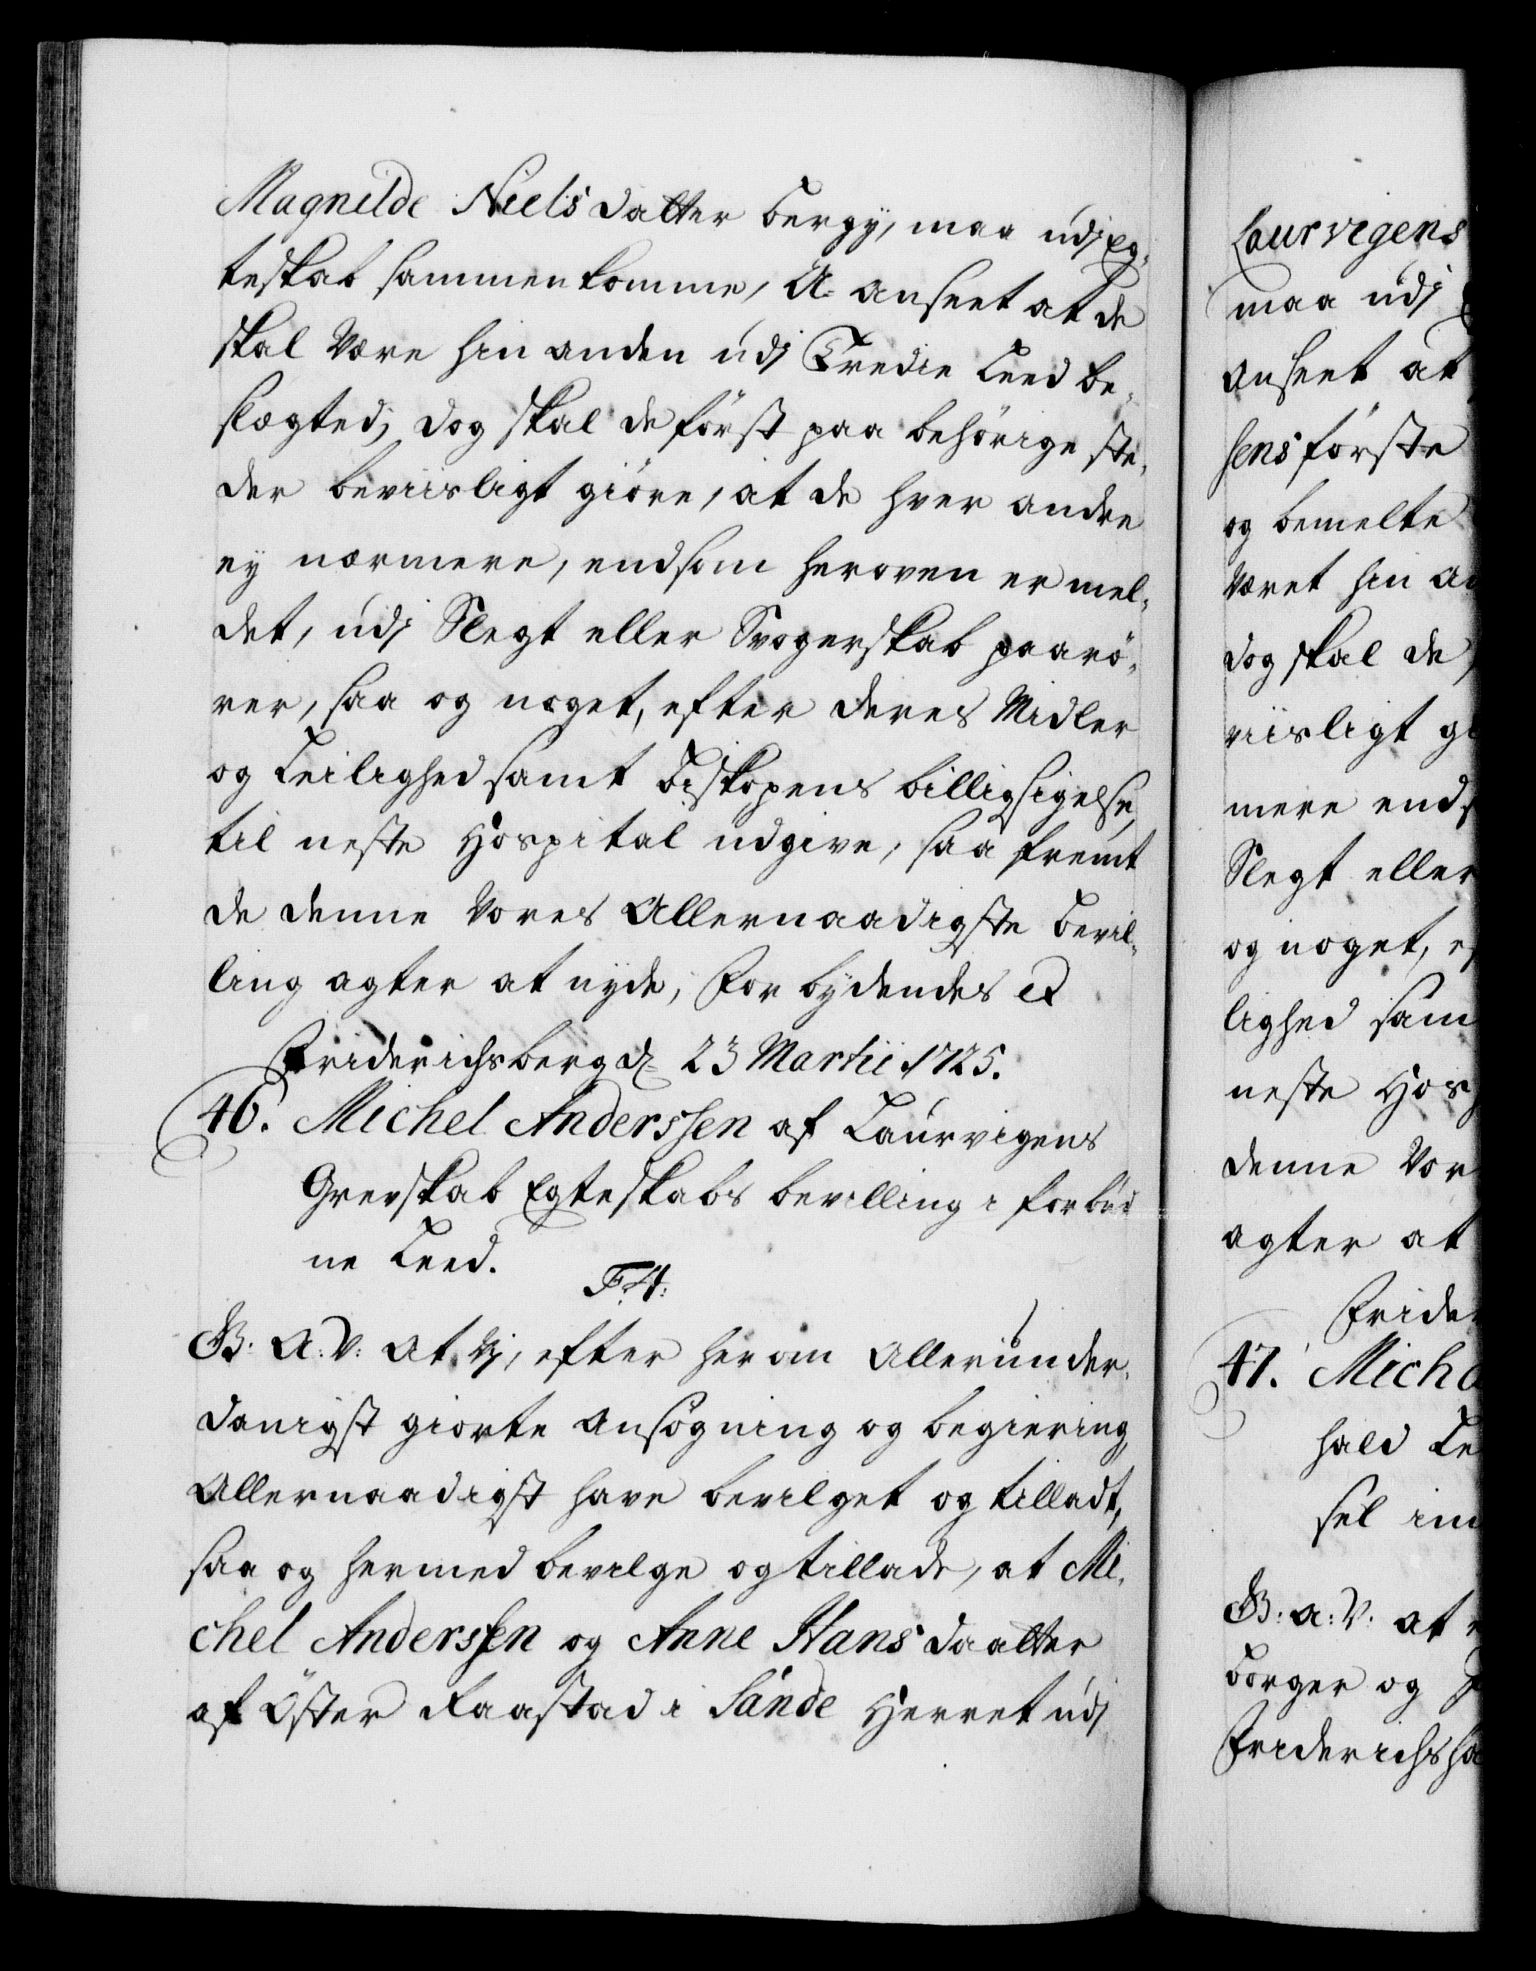 Magnilde Niels datter Bergy, maa udj Eg-
teskab sammenkomme, U-anseet at de
skal være hin anden udj Tredie Leed be-
slægted, dog skal de först paa behörige ste-
der beviisligt giöre, at de hver andre
ey nærmere, endsom heroven er mel-
det, udj Slegt eller Svogerskab paarö-
rer, saa og noget, efter deres Midler
og Leilighed samt Biskopens billigsigelse,
til neste Hospital udgive, saa fremt
de denne Vores Allernaadigste Bevil-
ling agter at nyde, Forbydendes et
Friderichsberg d. 23 Martii 1725.
46. Michel Anderssen af Laurvigens
Grevskab Egteskabs bevilling i forbud
ne Leed.
F. 4:
G: A: V: at Vj, efter herom Allerunder-
danigst giorte Ansögning og begiering,
Allernaadigst have bevilget og tilladt,
saa og hermed bevilge og tillade, at Mi-
chel Anderssen og Anne Hans daatter
af Öster Raastad i Sande Herret udj
Laurvigens
maa udj
anseet at
sens förste
og bemelte
været hin an
dog skal de
viisligt gi
mere ends
Slegt eller
og noget, ef
lighed sam
neste Hosp
denne Vor
agter at
Frider
47. Micha
hald Le
sel in
G: A: V: at
Borger og
Friderichsha